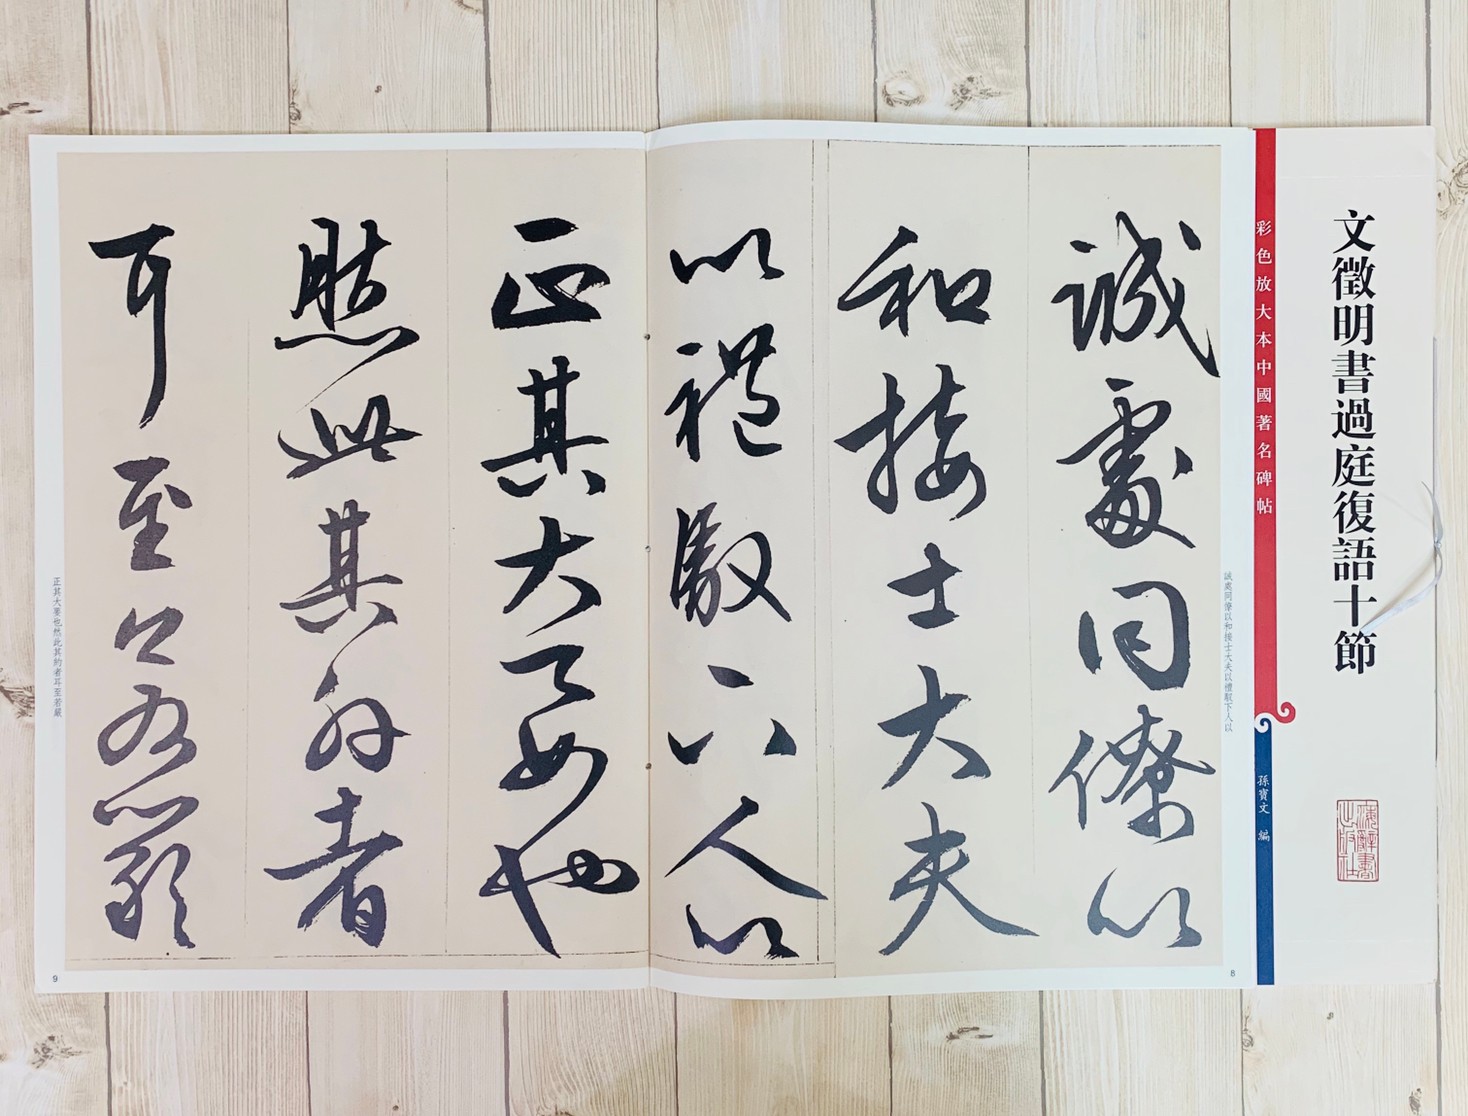 文徵明書過庭復語十節
彩色放大本中國著名碑帖
孫寶文 編
海辭書
出版社
誠處同僚以和接士大夫以禮馭下人以
誠處同僚以
和接士大夫
以禮馭下人以
8
正其大要也
然此其約者
耳至若嚴
正其大要也然此其約者耳至若嚴
9